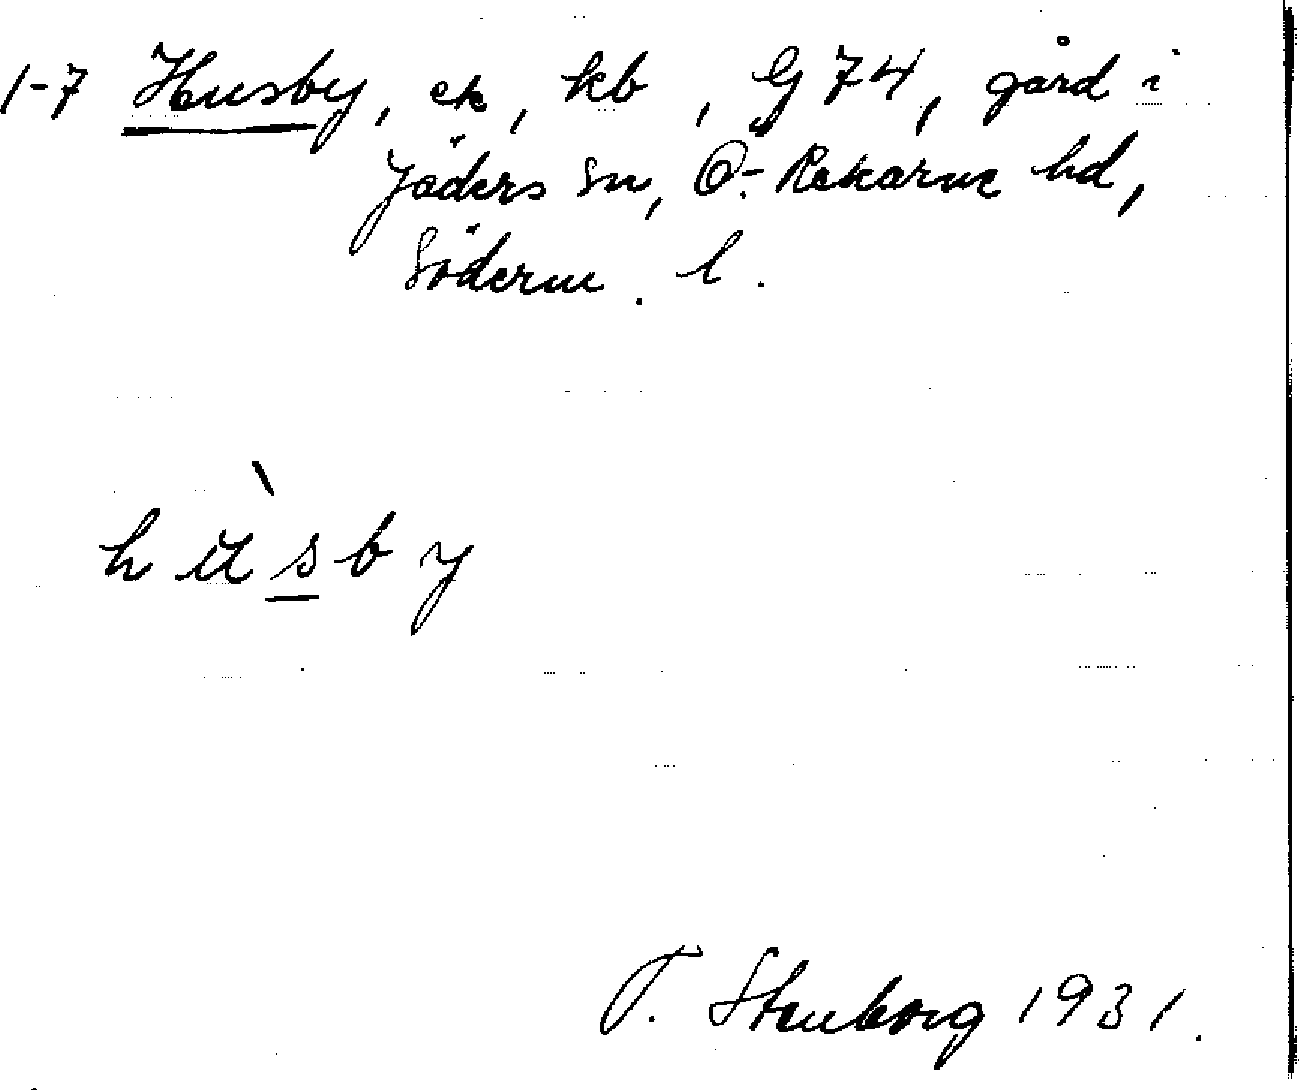 1-7 Husby, ek, kb, G 74, gård i
Jäders sn, Ö. Rekarne hd,
Söderm. l.
hùsby
T. Stenborg 1931.